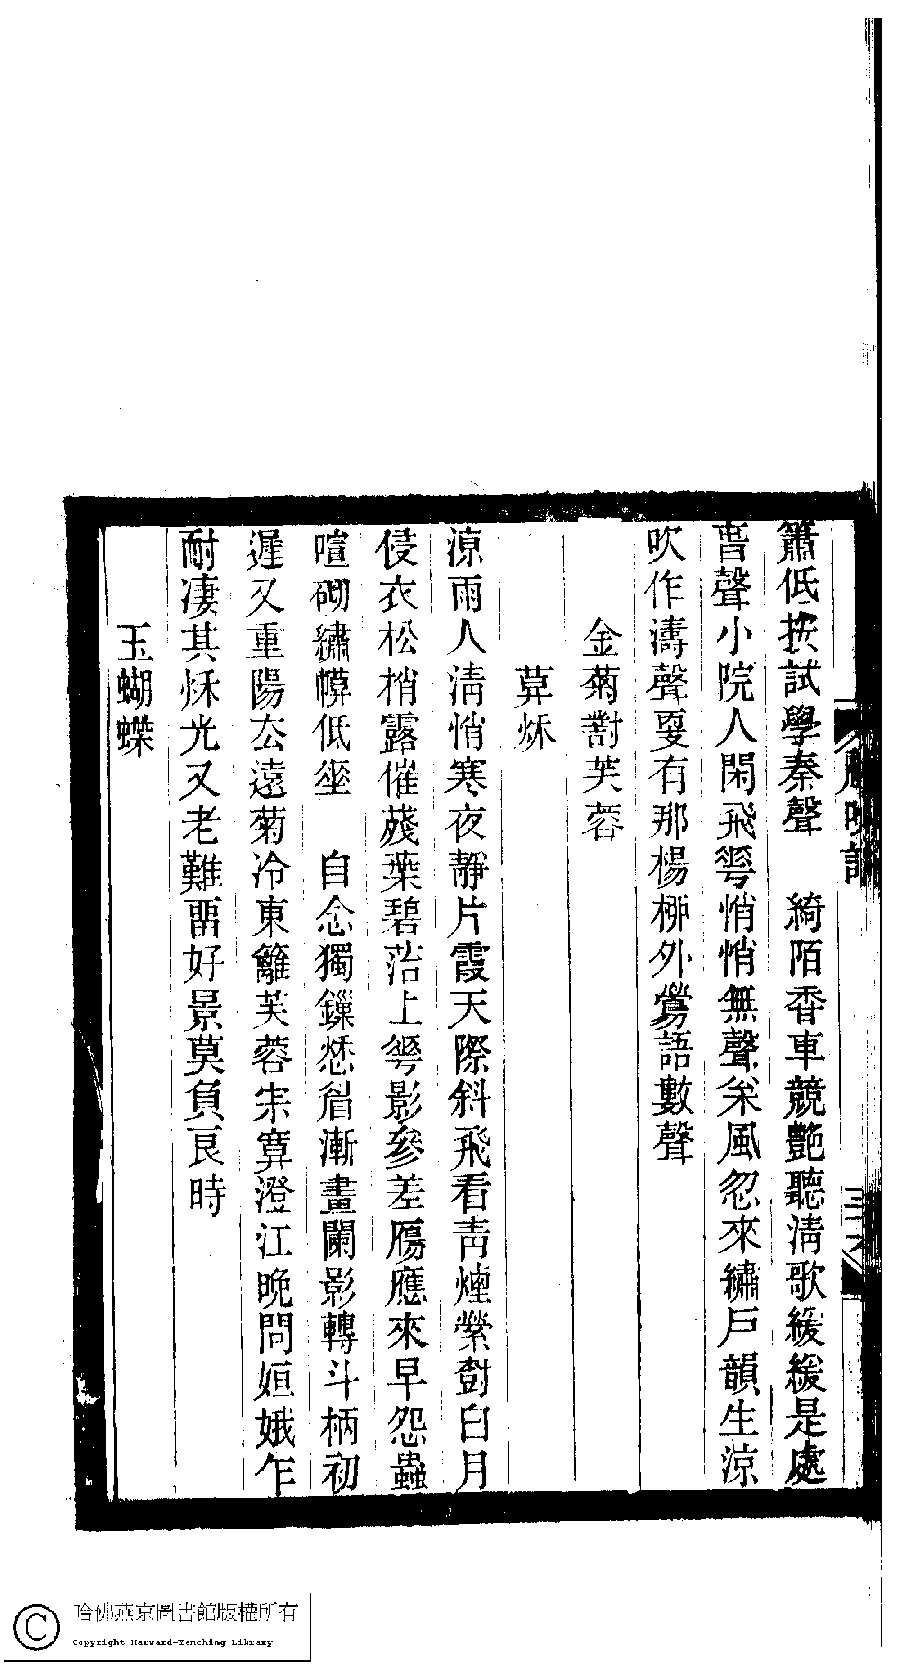 簫低按試學秦聲　綺陌香車競艷聽淸歌緩緩是處
曹聲小院人閑飛雩悄悄無聲釆風忽來繡戸韻生涼
吹作濤聲要有那楊桺外鶯語數聲
金菊對芙蓉
莫秌
涼雨人淸悄寒夜靜片霞天際斜飛看靑煙縈對白月
侵衣松梢露催殘葉碧菭上雩影參差鴈應來早怨蟲
喧砌繡幙低垂　自念獨鏁愁眉漸畫闌影轉斗柄初
遲又重陽厺遠菊冷東籬芙蓉宋寞澄江晚問姮娥乍
耐凄其秌光又老難畱好景莫負良時
玉蝴蝶
哈佛燕京圖書館版權所有
Copyright Harvard-Yenching Library